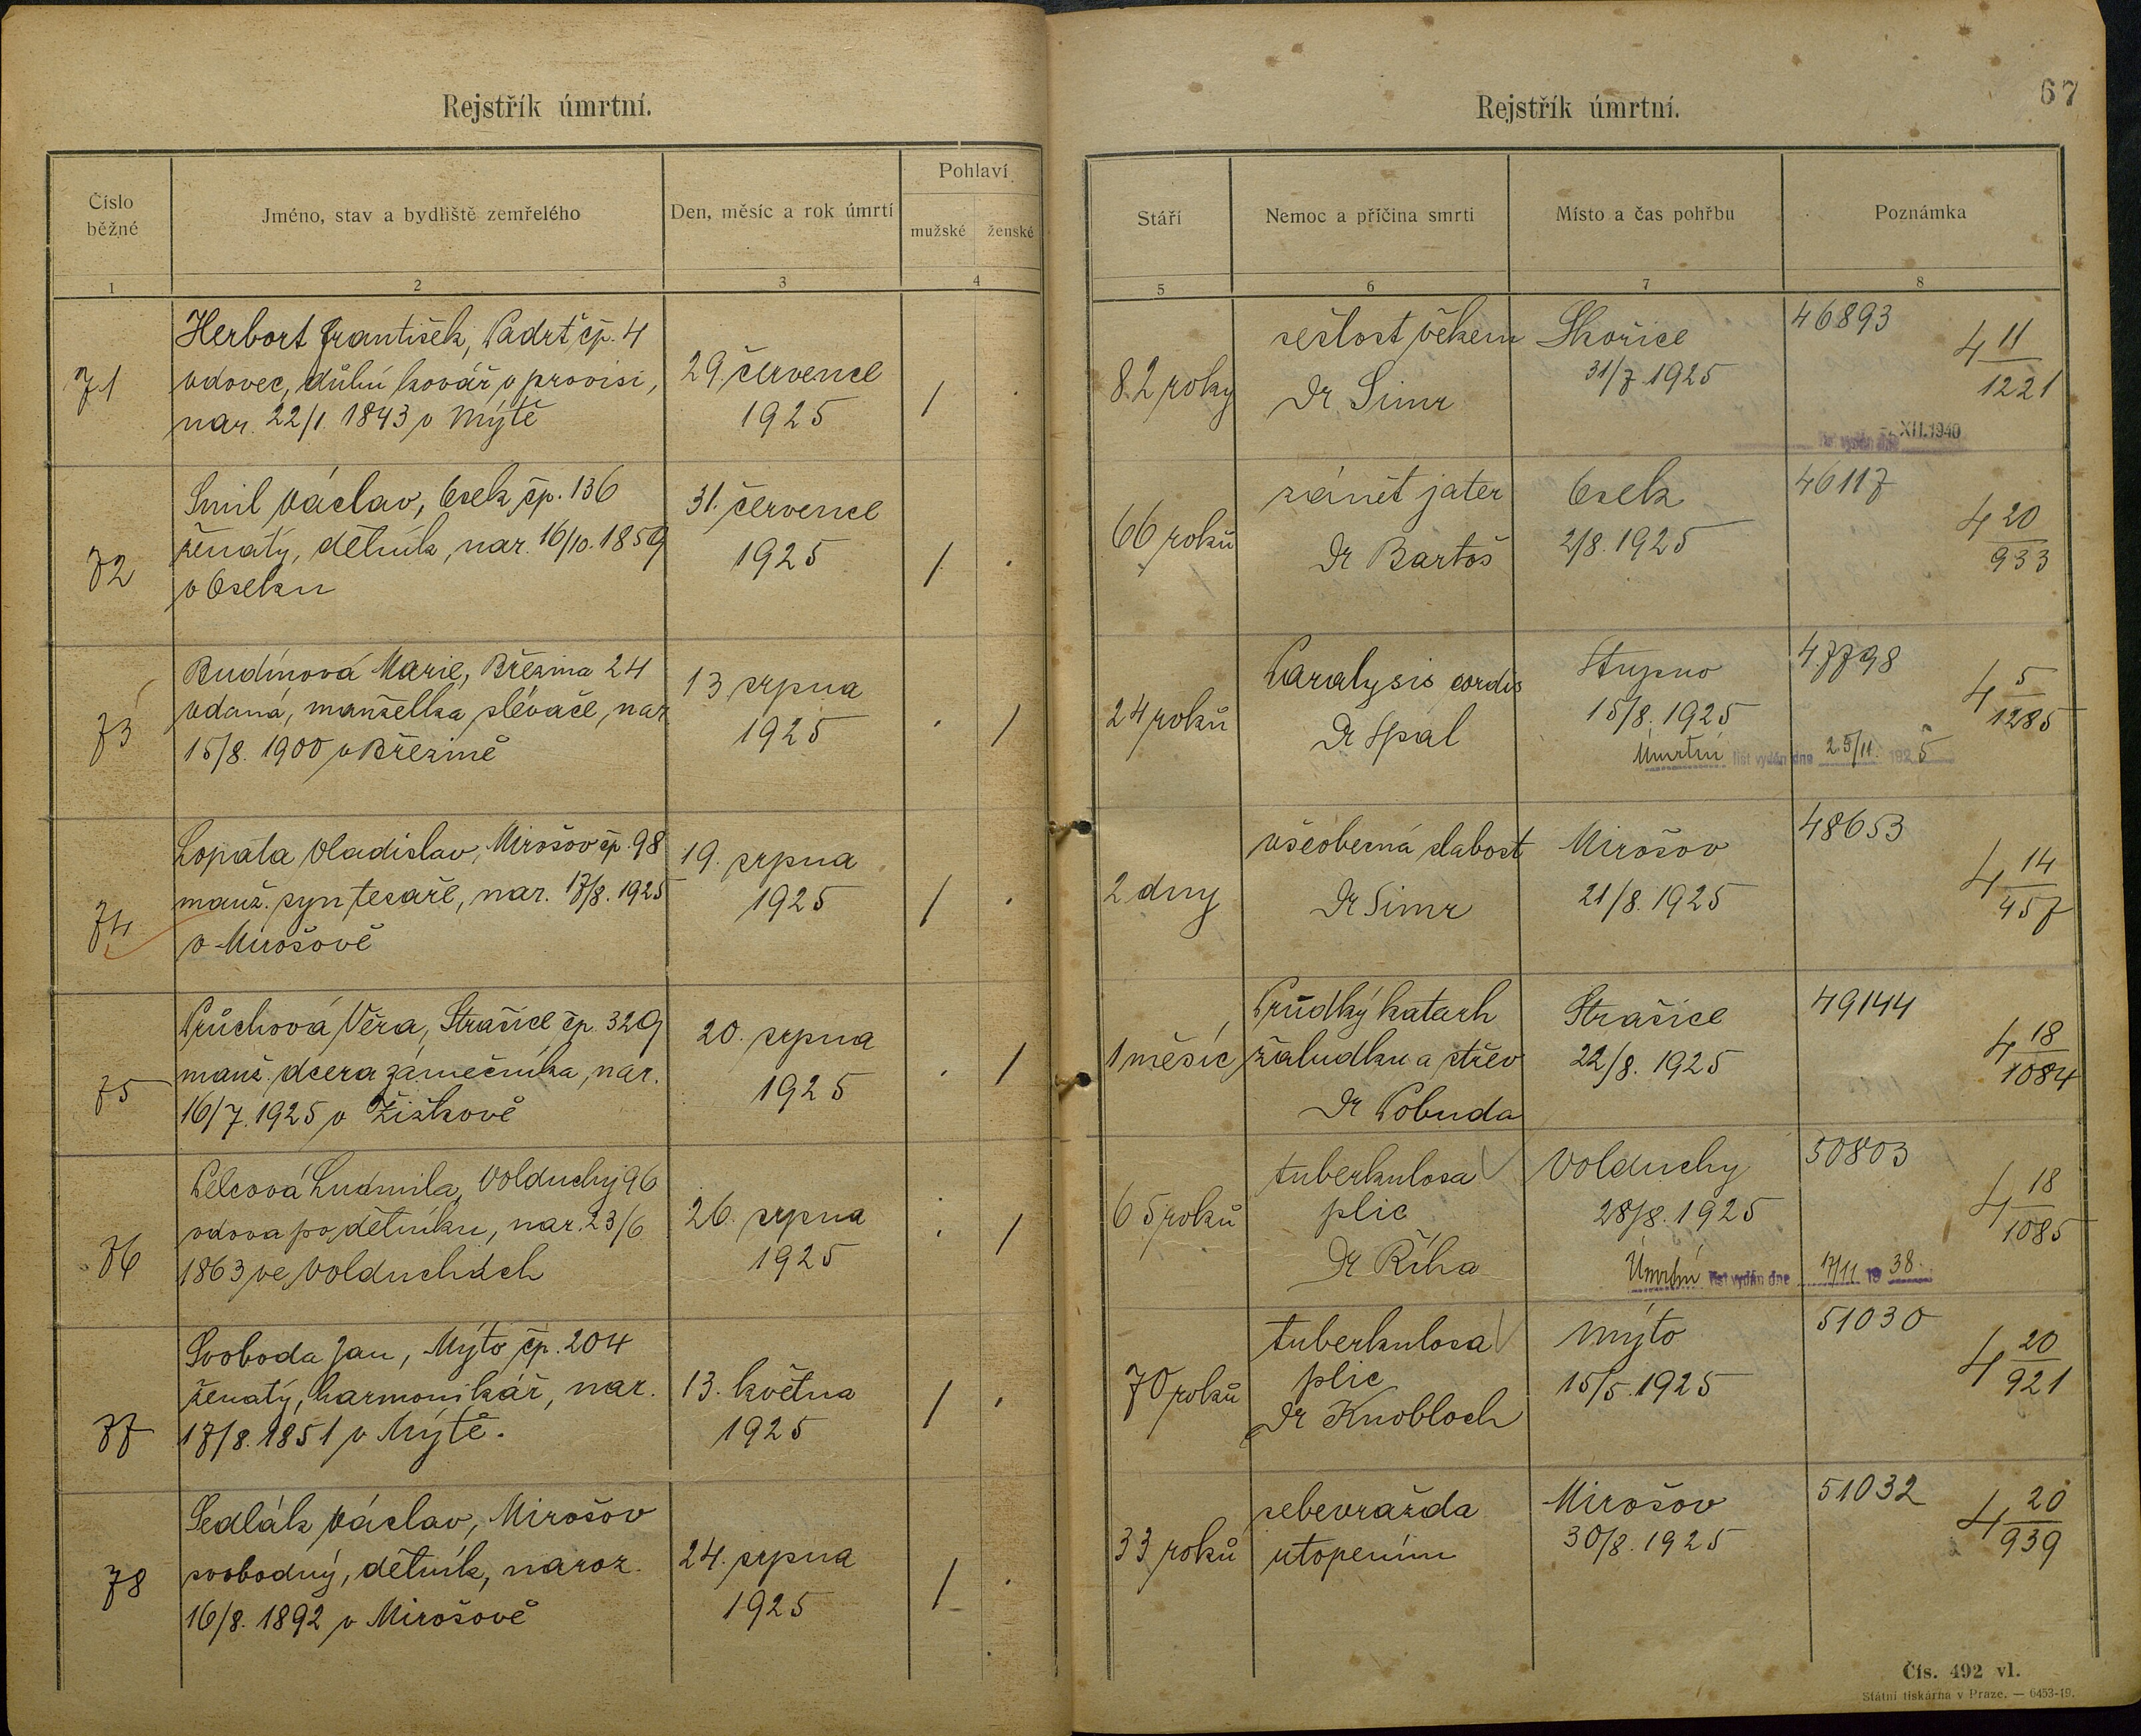 Rejstřík úmrtní.
Číslo běžné
Jméno, stav a bydliště zemřelého
Den, měsíc a rok úmrtí
Pohlaví
mužské
ženské
1
2
3
4
71
Herbort František, Padrť čp. 4
vdovec, důlní kovář v provisi,
nar. 22/1. 1843 v Mýtě
29. července
1925
/
.
72
Smil Václav, Osek čp. 136
ženatý, dělník, nar. 16/10. 1859
v Oseku
31. července
1925
/
.
73
Budínová Marie, Březina 24
vdaná, manželka slévače, nar.
15/8. 1900 v Březině
13 srpna
1925
.
/
74
Lopata Vladislav, Mirošov čp. 98
manž. syn tesaře, nar. 17/8. 1925
v Mirošově
19. srpna
1925
/
.
75
Průchová Věra, Strašice čp. 329
manž. dcera zámečníka, nar.
16/7. 1925 v Žižkově
20. srpna
1925
.
/
76
Pelcová Ludmila, Volduchy 96
vdova po dělníku, nar. 23/6
1863 ve Volduchách
26. srpna
1925
.
/
77
Svoboda Jan, Mýto čp. 204
ženatý, harmonikář, nar.
17/8. 1851 v Mýtě.
13. května
1925
/
.
78
Sedlák Václav, Mirošov
svobodný, dělník, naroz.
16/8. 1892 v Mirošově
24. srpna
1925
/
.
67
Rejstřík úmrtní.
Stáří
Nemoc a příčina smrti
Místo a čas pohřbu
Poznámka
5
6
7
8
82 roky
sešlost věkem
Dr Simr
Skořice
31/7. 1925
46893
4 11/1221
list vydán dne XII.1940
66 roků
zánět jater
Dr Bartoš
Osek
2/8. 1925
46117
4 20/933
24 roků
Paralysis cordis
Dr Špal
Stupno
15/8. 1925
47798
4 5/1285
Úmrtní list vydán dne 25/11. 1925
2 dny
všeobecná slabost
Dr Simr
Mirošov
21/8. 1925
48653
4 14/457
1 měsíc
Prudký katarh
žaludku a střev
Dr Pobuda
Strašice
22/8. 1925
49144
4 18/1084
65 roků
tuberkulosa
plic
Dr Říha
Volduchy
28/8. 1925
50803
4 18/1085
Úmrtní list vydán dne 17/11 1938.
70 roků
tuberkulosa
plic
Dr Knobloch
Mýto
15/5. 1925
51030
4 20/921
33 roků
sebevražda
utopením
Mirošov
30/8. 1925
51032
4 20/939
Čís. 492 vl.
Státní tiskárna v Praze. — 6453-19.